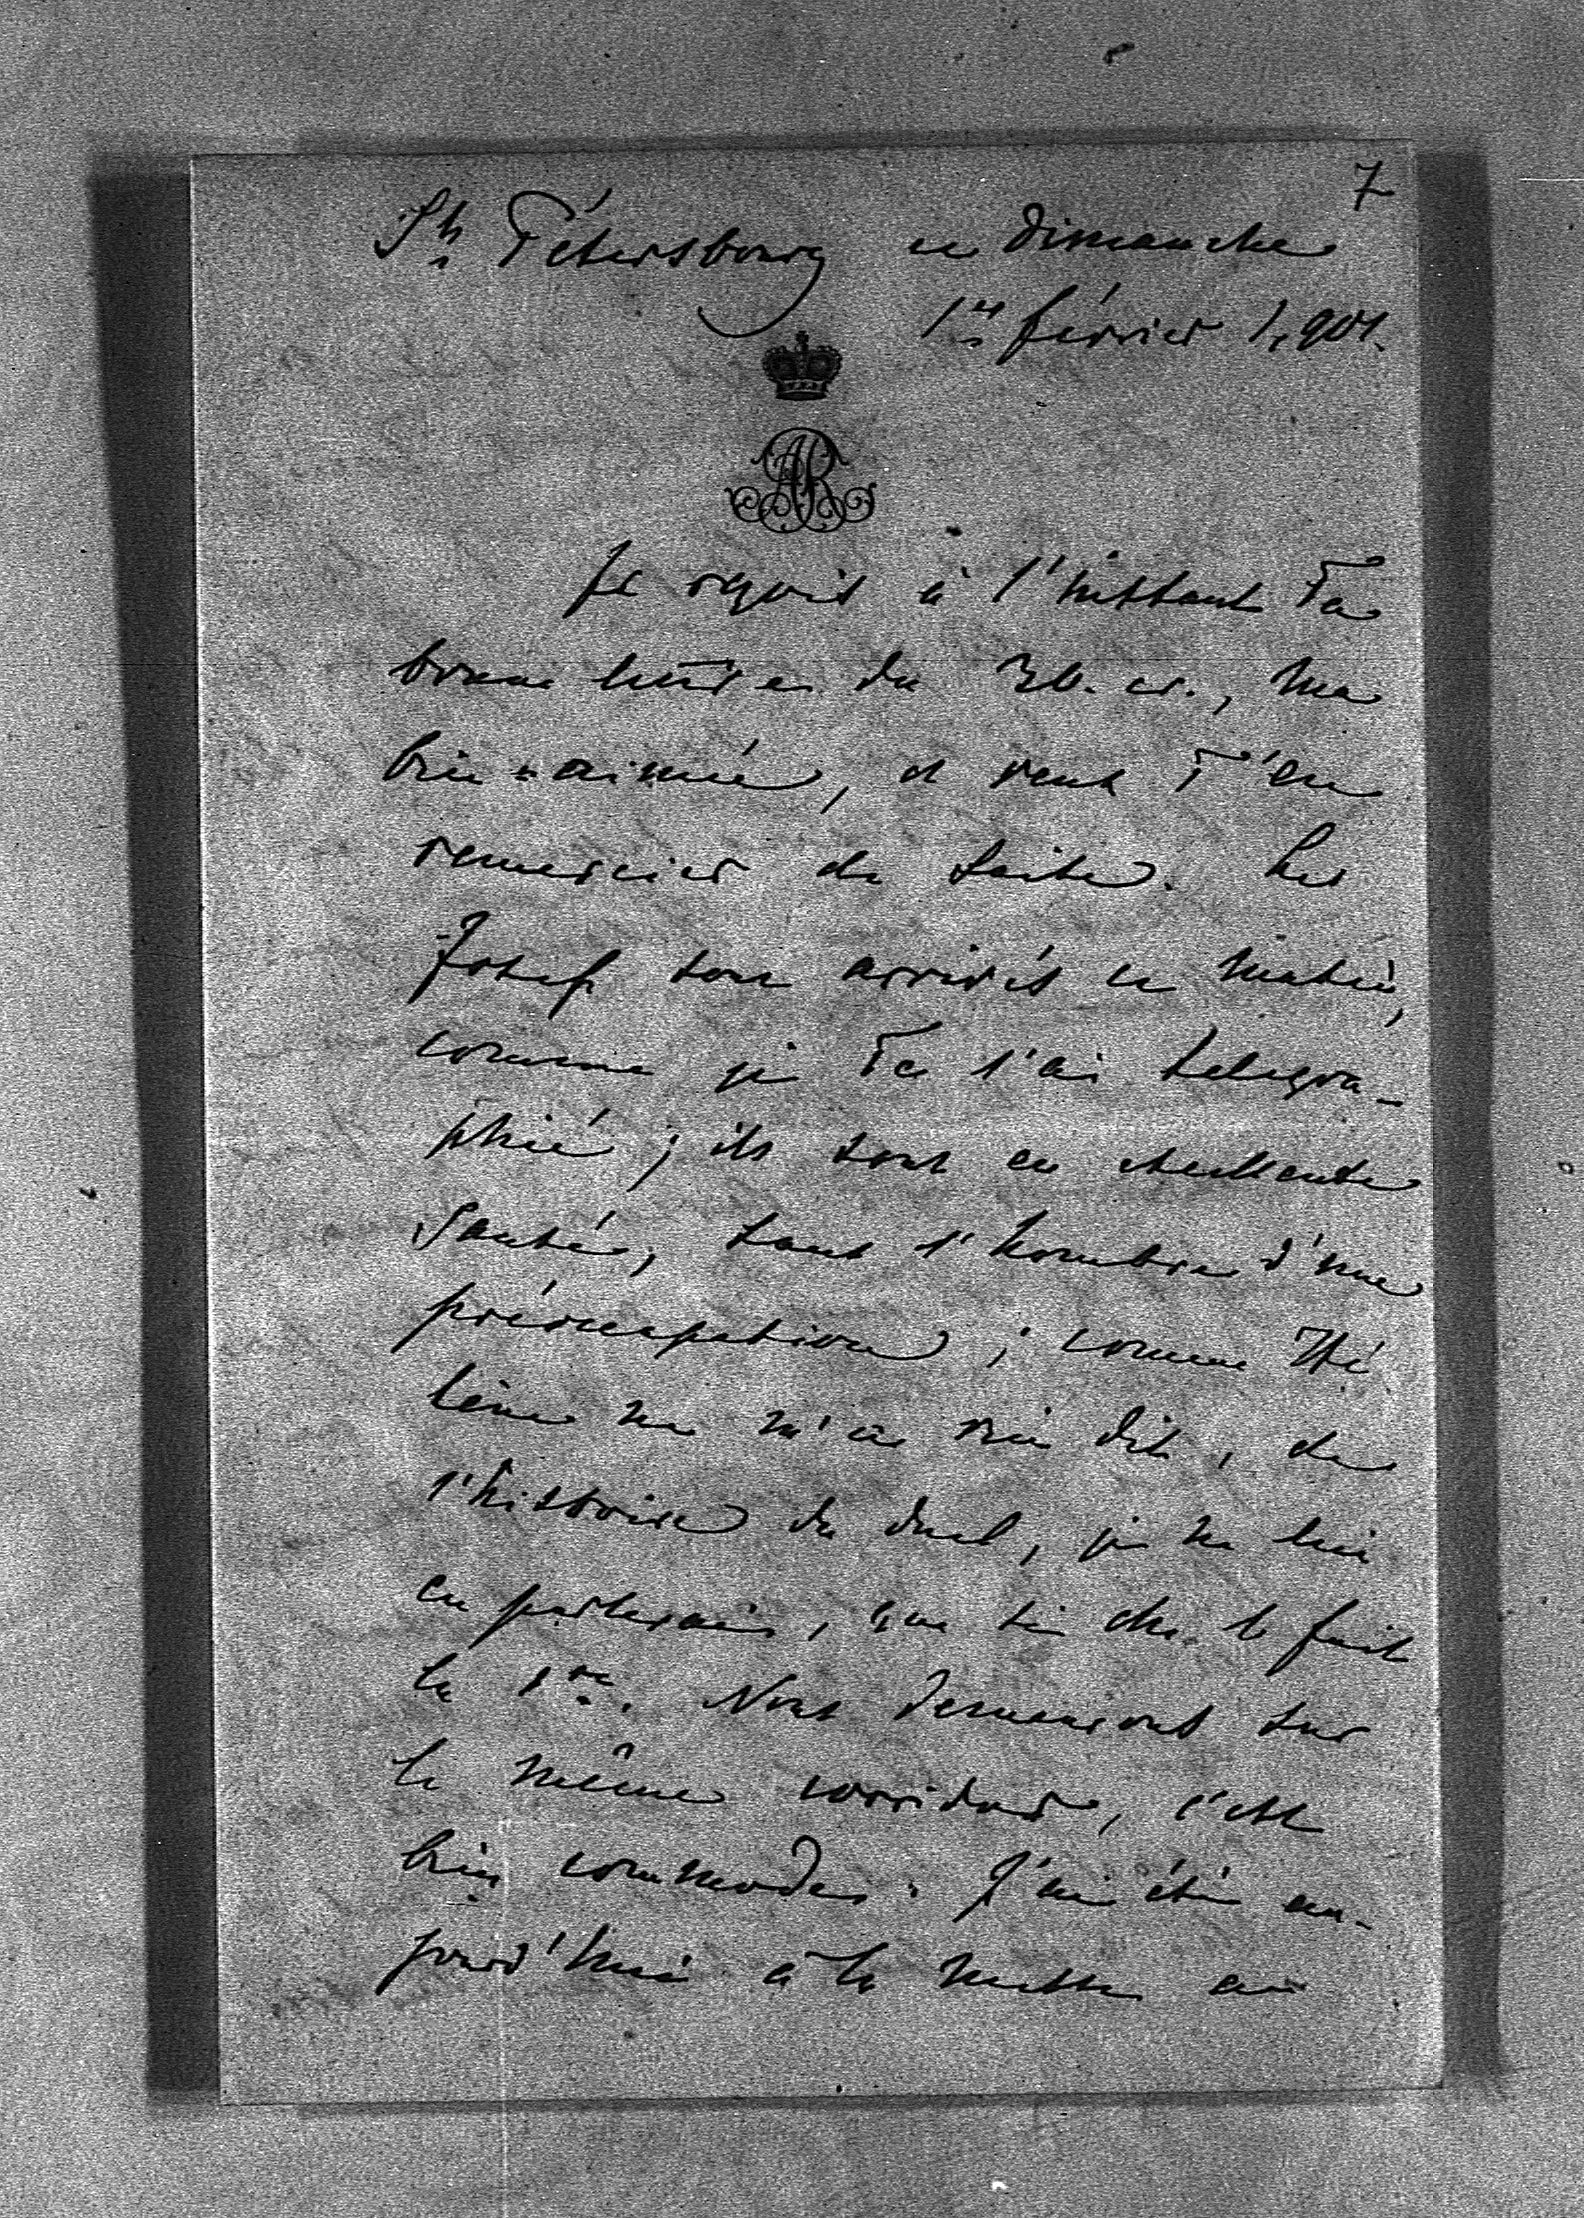 7
St Pétersbourg ce dimanche
1er février 1,904.
AR
Je reçois à l'instant Ta
bonne lettre du 30. cr., ma
bien-aimée, et veux T'en
remercier de suite. Les
Josef sont arrivés ce matin,
comme je Te l'ai telegra-
phié; ils sont en excellente
santé, sans l'hombre d'une
préoccupation; comme Hé
lène ne m'a rien dit, de
l'histoire du duel, je ne lui
en parlerais, que si elle le fait
la 1re. Nous demeurons sur
le même corridor, c'est
bien commode. J'ai été au-
jourd'hui à la messe au